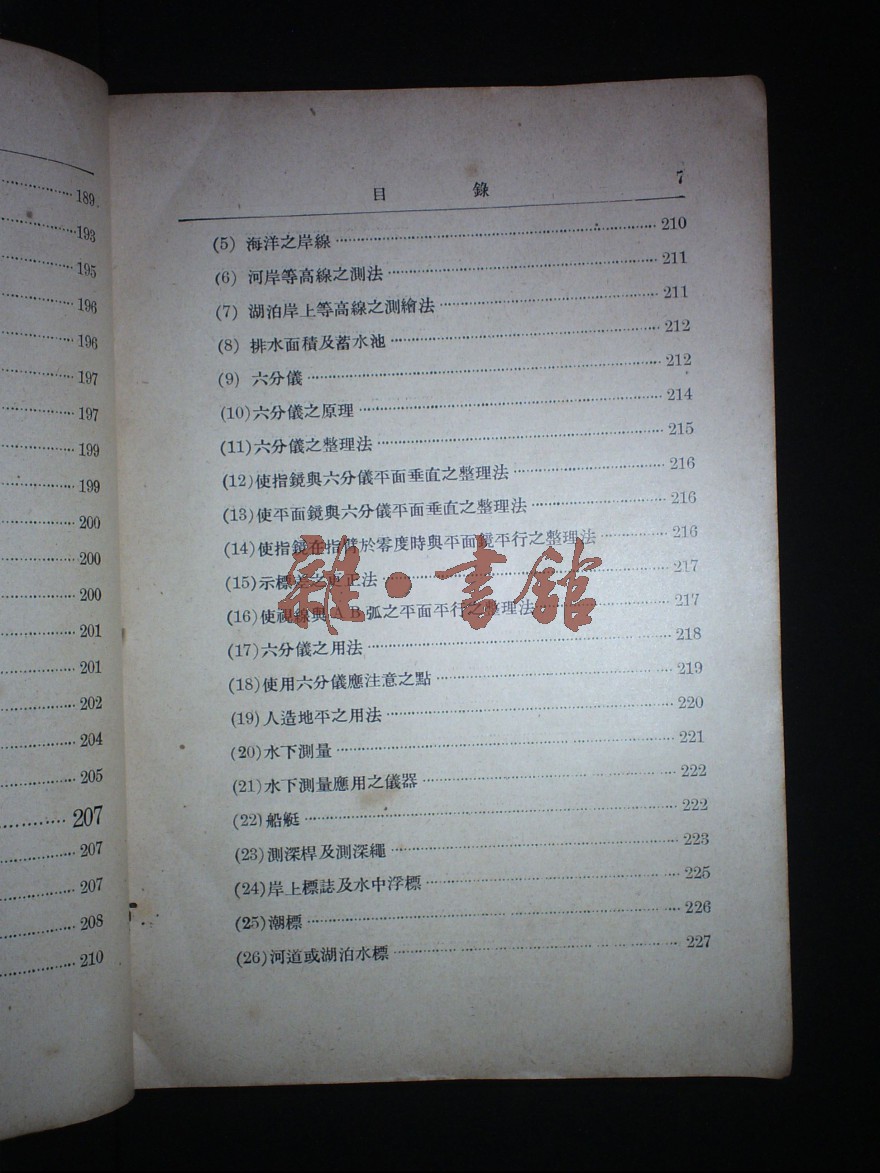 189
193
195
196
196
197
197
199
199
200
200
200
201
201
202
204
205
207
207
207
208
210
目錄 7
(5) 海洋之岸線 210
(6) 河岸等高線之測法 211
(7) 湖泊岸上等高線之測繪法 211
(8) 排水面積及蓄水池 212
(9) 六分儀 212
(10)六分儀之原理 214
(11)六分儀之整理法 215
(12)使指鏡與六分儀平面垂直之整理法 216
(13)使平面鏡與六分儀平面垂直之整理法 216
(14)使指鏡在指臂於零度時與平面鏡平行之整理法 216
(15)示標差之更正法 217
(16)使視線與AB弧之平面平行之整理法 217
(17)六分儀之用法 218
(18)使用六分儀應注意之點 219
(19)人造地平之用法 220
(20)水下測量 221
(21)水下測量應用之儀器 222
(22)船艇 222
(23)測深桿及測深繩 223
(24)岸上標誌及水中浮標 225
(25)潮標 226
(26)河道或湖泊水標 227
雜·書館